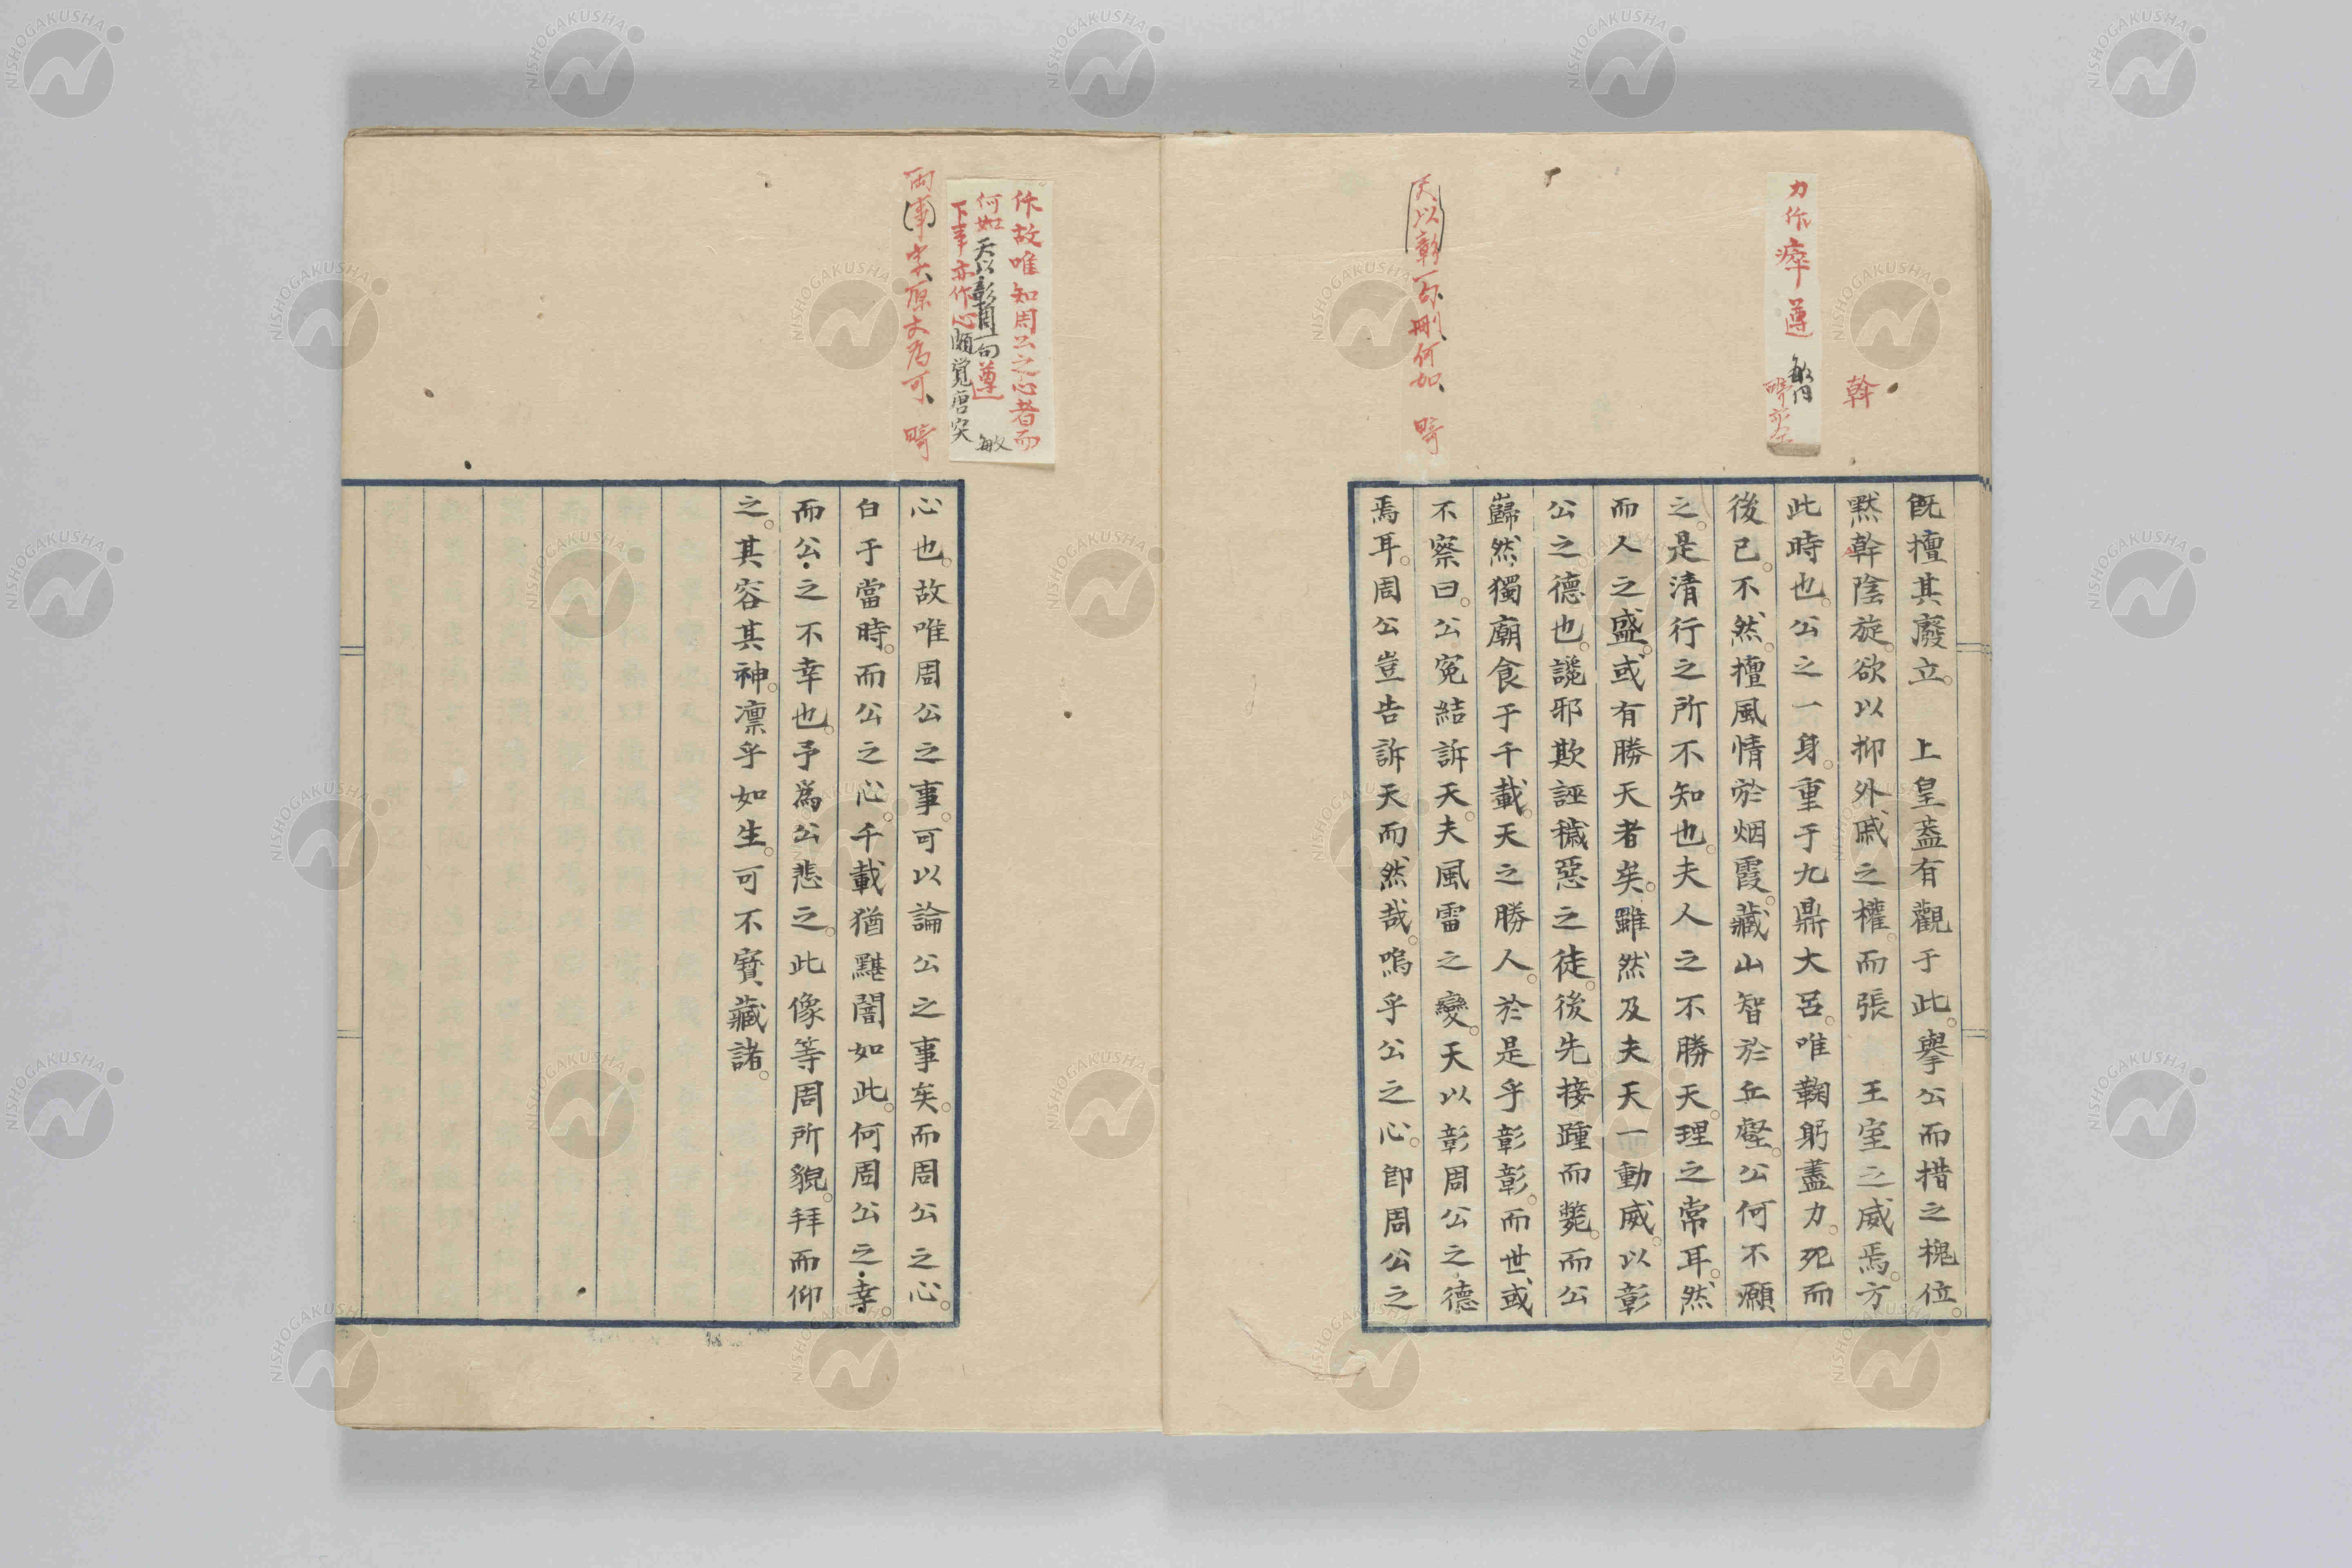 幹
力作瘁 遵
天以彰一句刪何如 𤲬
既擅其廢立。 上皇蓋有觀于此。擧公而措之槐位。
黙幹陰旋。欲以抑外戚之權。而張 王室之威焉。方
此時也。公之一身。重于九鼎大呂。唯鞠躬盡力。死而
後已。不然。擅風情於烟霞。藏山智於丘壑。公何不願
之。是清行之所不知也。夫人之不勝天。理之常耳。然
而人之盛。或有勝天者矣。雖然及夫天一動威。以彰
公之德也。讒邪欺誣穢惡之徒。後先接踵而斃。而公
巋然獨廟食于千載。天之勝人。於是乎彰彰。而世或
不察曰。公冤結訴天。夫風雷之變。天以彰周公之德
焉耳。周公豈告訴天而然哉。嗚乎公之心。即周公之
作故唯知周公之心者而
何如 天以彰周一句 遵 敏
下事亦作心 頗覚唐突
兩事字、原文為可、
心也。故唯周公之事。可以論公之事矣。而周公之心。
白于當時。而公之心。千載猶黮闇如此。何周公之幸。
而公之不幸也。予為公悲之。此像等周所貌。拜而仰
之。其容其神。凛乎如生。可不寳藏諸。
NISHOGAKUSHA